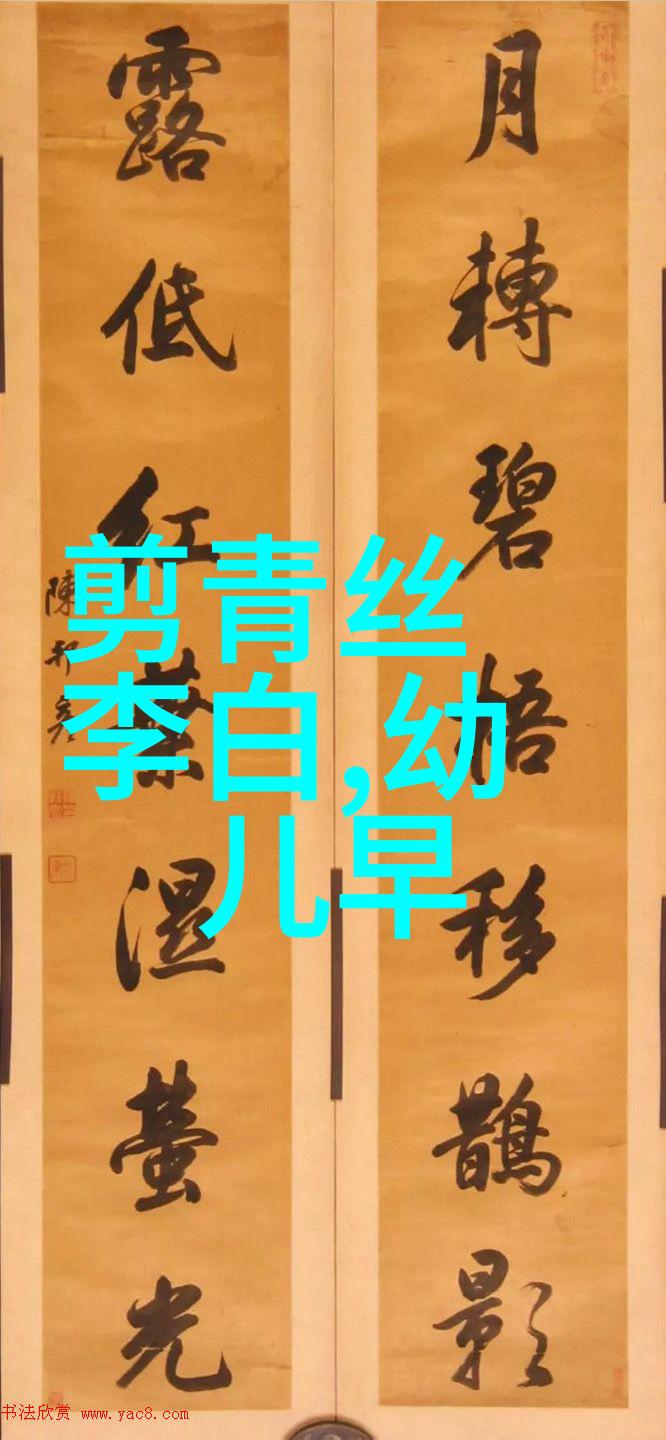 月轉碧梧移鵲影
露低紅葉濕螢光
陳邦彥
剪青丝
李白,幼
儿早
书法欣赏 www.yac8.com